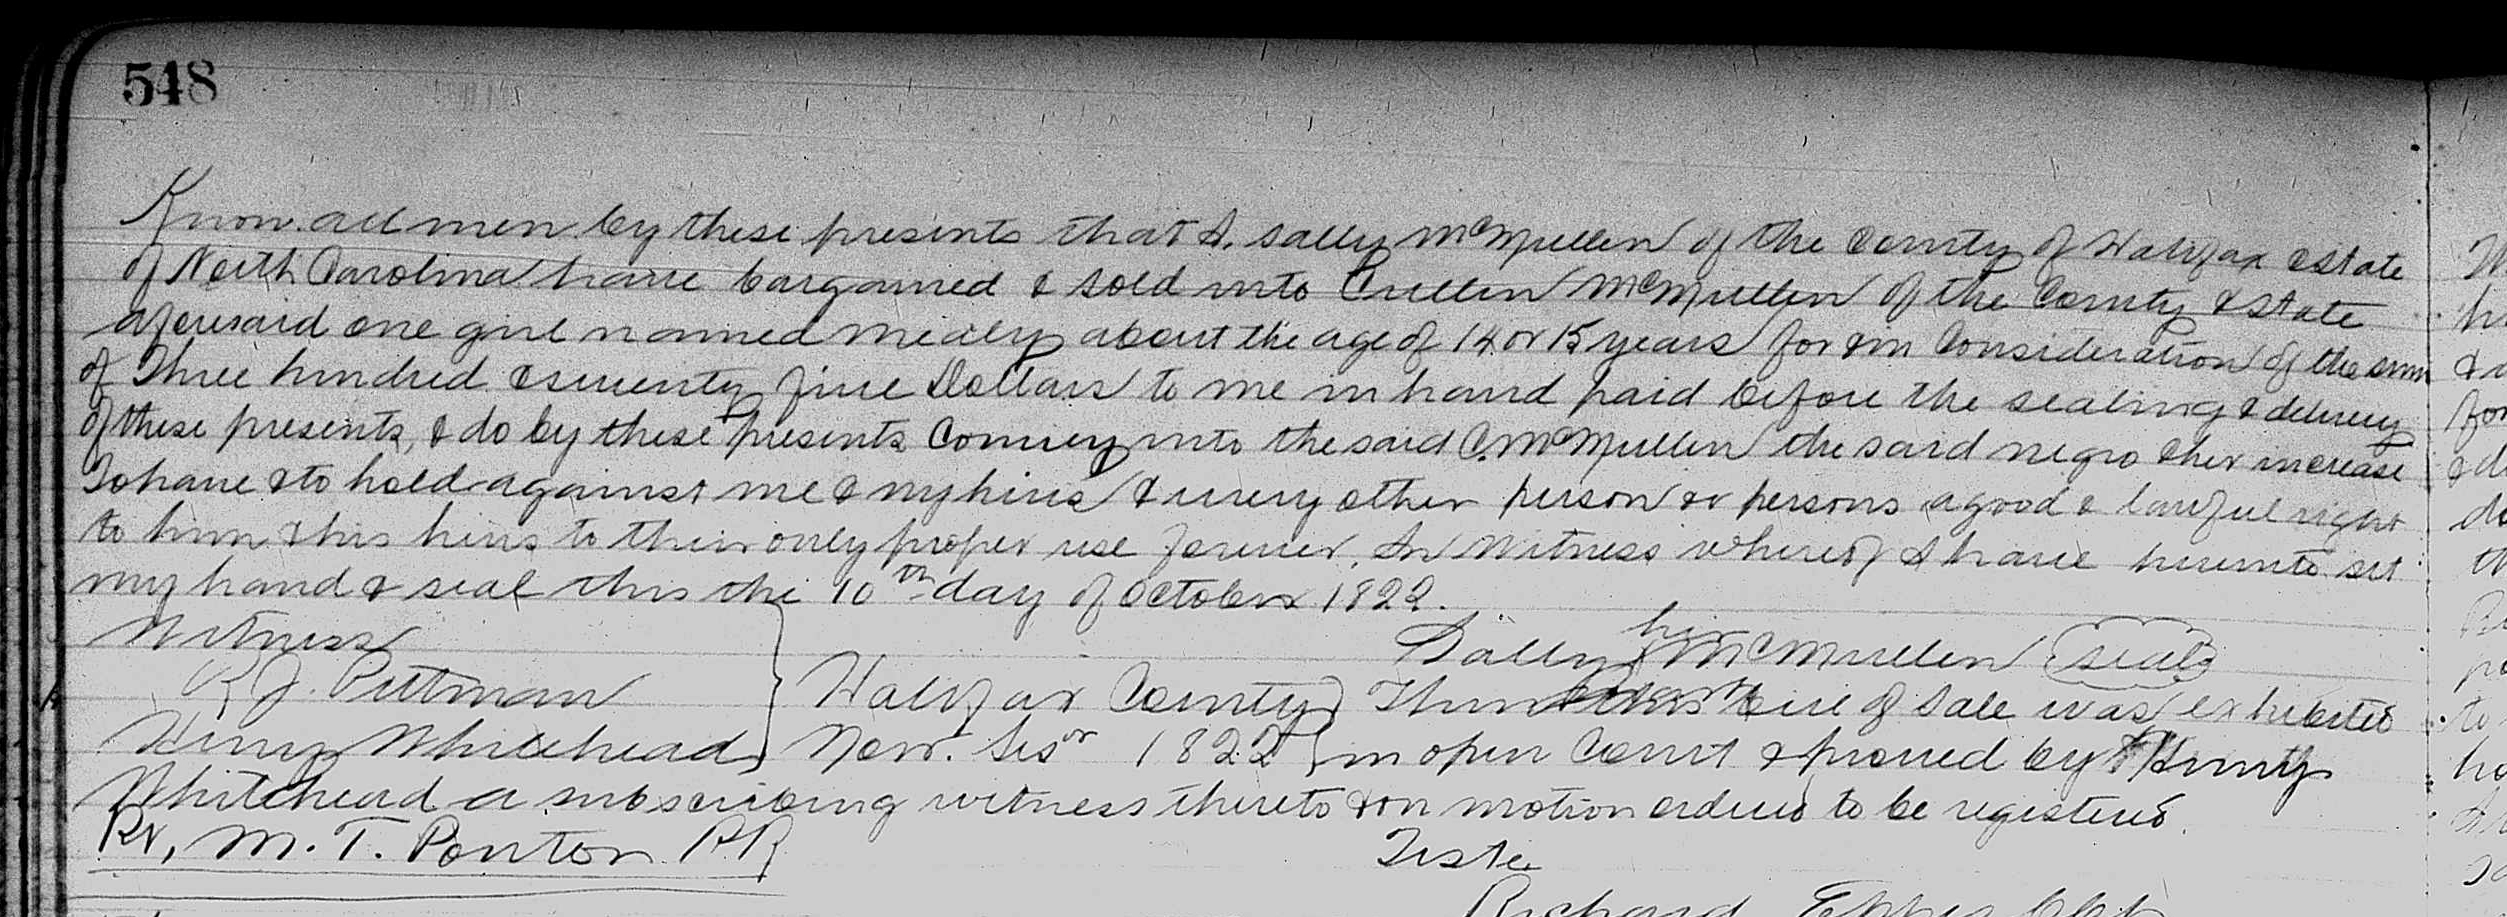 548
Know all men by these presents that I, Sally McMullen of the County of Halifax & State
of North Carolina have bargained & sold unto Cullen McMullen of the County & State
aforesaid one girl named Mealy about the age of 14 or 15 years for & in Consideration of the sum
of Three hundred & seventy five Dollars to me in hand paid before the sealing & delivery
of these presents, & do by these presents Convey unto the said C. McMullen the said negro & her increase
To have & to hold against me & my heirs & every other person or persons a good & lawful right
to him & his heirs to their only proper use forever. In Witness whereof I have hereunto set
my hand & seal this the 10th day of October 1822.
Witness
her
Sally X McMullen seal
R J. Pittman
Halifax County } Then bill of Sale was exhibited
Henry Whitehead } Nov. Sesn 1822 } in open Court & proved by Henry
Whitehead a subscribing witness thereto & on motion ordered to be registered.
Rr, M. T. Ponton P.R
Teste
Richard Eppes Clk